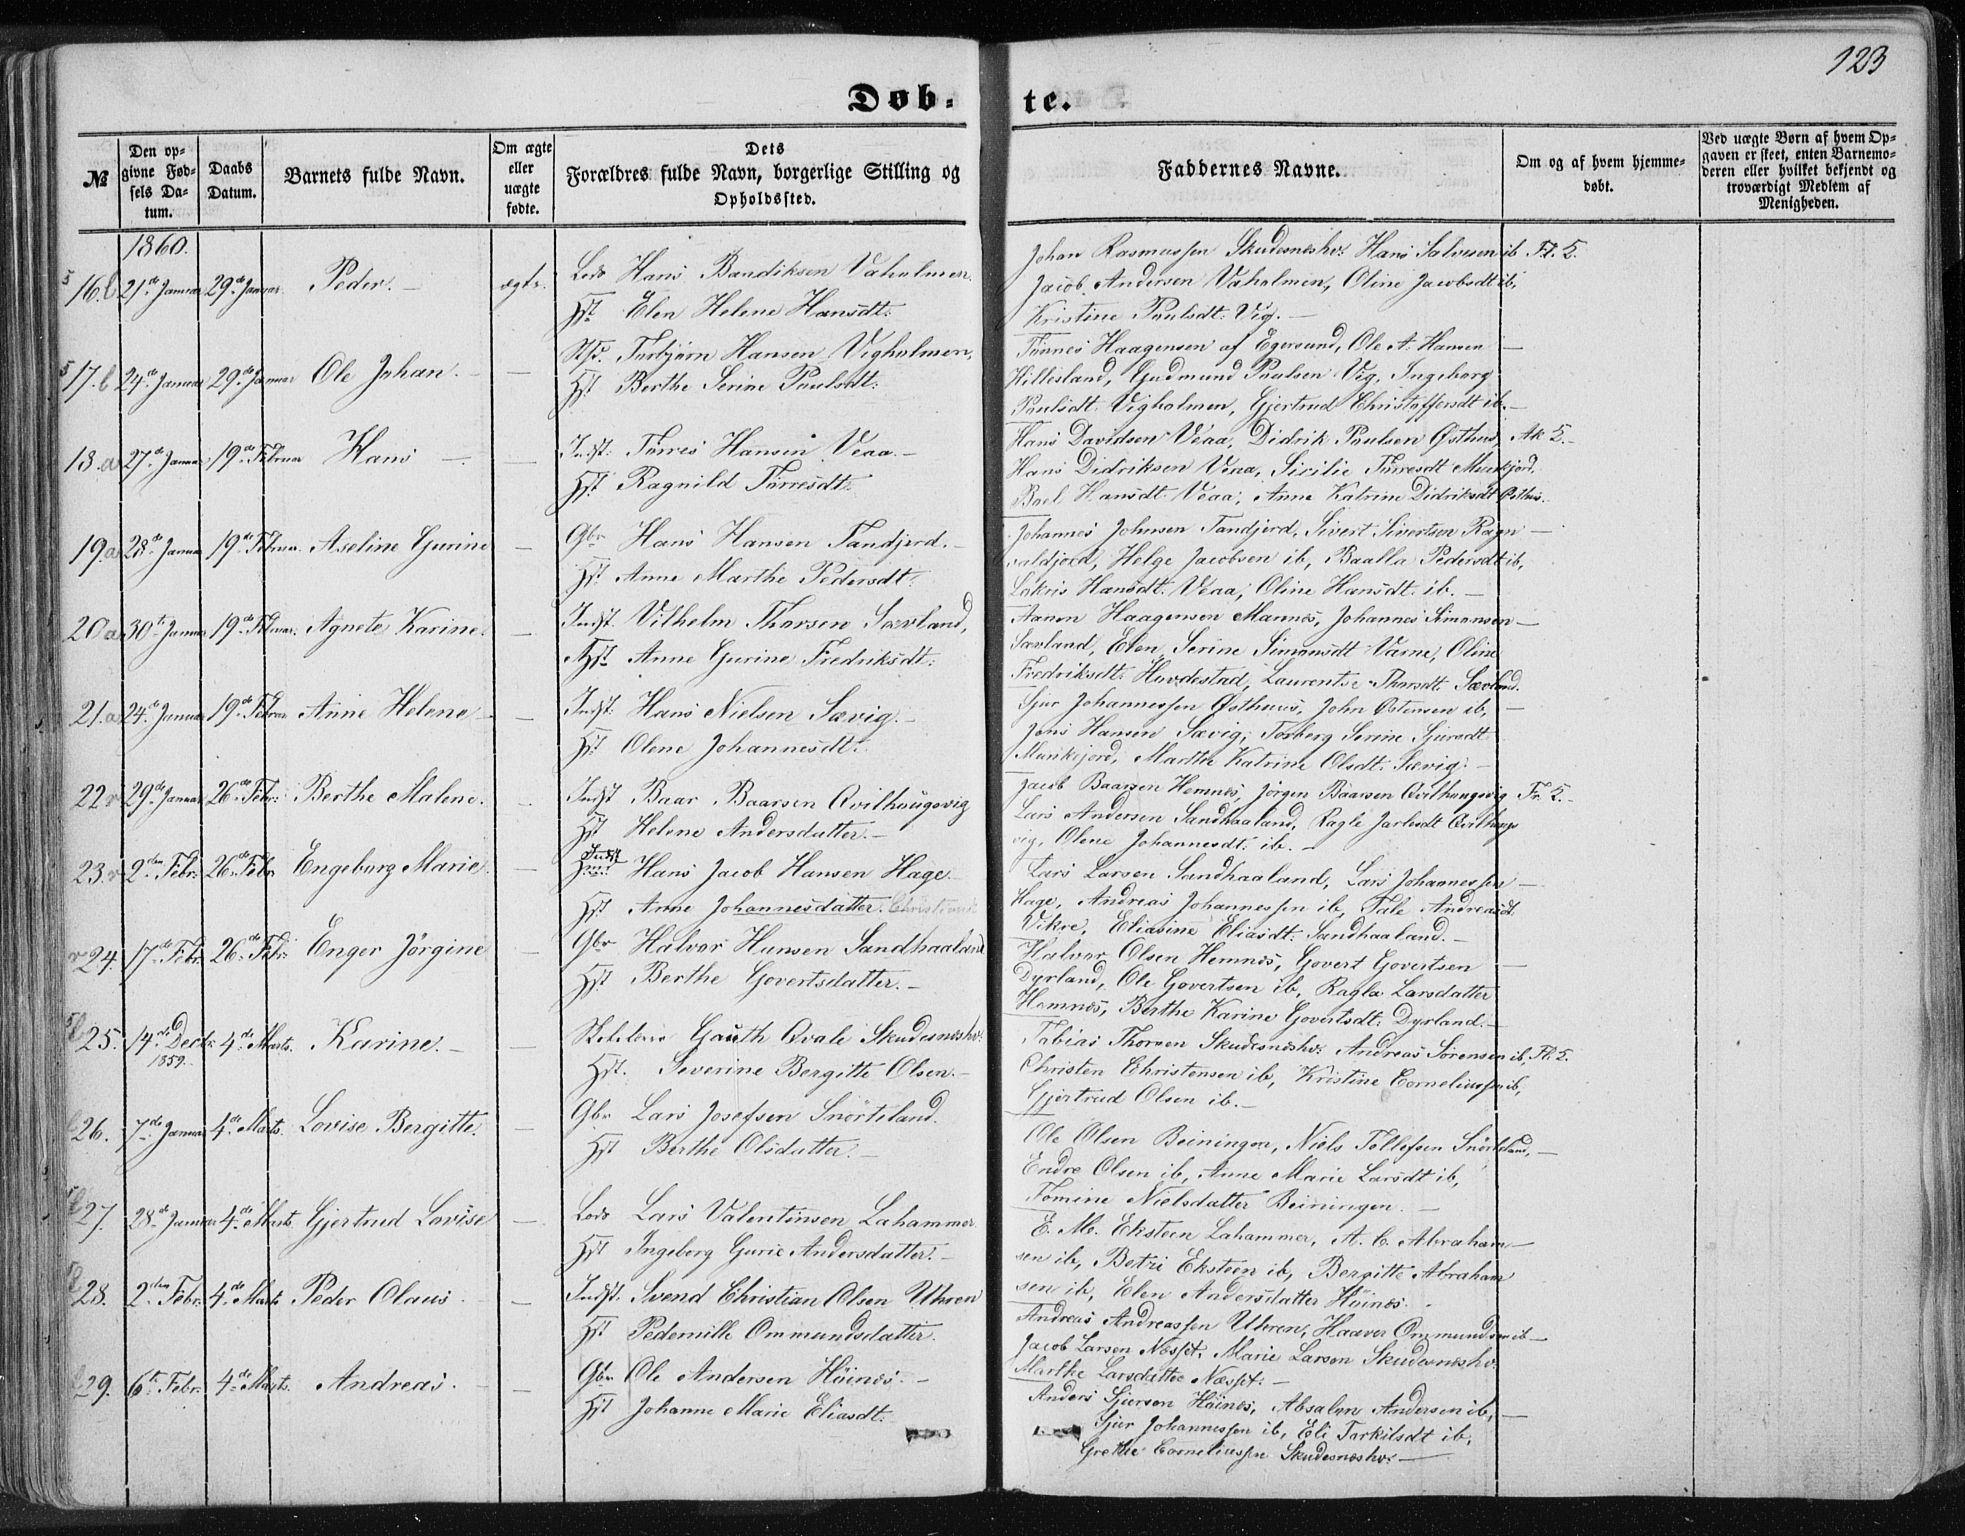 123
Døb-
te.
№
Den op-
givne Fød-
sels Da-
tum.
Daabs
Datum.
Barnets fulde Navn.
Om ægte
eller
uægte
fødte.
Dets
Forældres fulde Navn, borgerlige Stilling og
Opholdssted.
Faddernes Navne.
Om og af hvem hjemme-
døbt.
Ved uægte Børn af hvem Op-
gaven er skeet, enten Barnemo-
deren eller hvilket bekjendt og
troværdigt Medlem af
Menigheden.
1860.
16. b 21de Januar 29de Januar Peder. - ægte. Lods Hans Bendiksen Vaholmen.
Hst. Elen Helene Hansdt:
Johan Rasmussen Skudesneshv: Hans Salvesen ib, Fl. 5.
Jacob Andersen Vaholmen, Oline Jacobsdt ib,
Kristine Paulsdt: Vig. -
17. b 24de Januar 29de Januar Ole Johan. - — Torbjørn Hansen Vigholmen,
Hst Berthe Serine Paulsdt:
Tønnes Haagensen af Egersund, Ole A. Hansen —
Hillesland, Gudmund Paulsen Vig, Ingeborg
Paulsdt: Vigholmen, Gjertrud Christoffersdt ib. -
18. a 27de Januar 19de Februar Hans - — Indst: Tørres Hansen Veaa. -
Hst. Ragnild Tørresdt:
Hans Davidsen Veaa, Didrik Paulsen Østhus, Ak 5. -
Hans Didriksen Veaa, Sisilie Tørresdt Munkjord,
Hansdt: Veaa, Anne Katrine Didriksdt Østhus.
19. a 28de Januar 19de Februar. Aseline Gurine — Gbr Hans Hansen Tandjord. -
Hst. Anne Marthe Pedersdt:
Johannes Johnsen Tandjord, Sivert Sivertsen Ragn —
valdjord, Helge Jacobsen ib, Baalla Pedersdt ib,
Lokris Hansdt: Veaa, Oline Hansdt: ib. -
20 a 30te Januar 19de Februar. Agnete Karine. — Indst. Vilhelm Thorsen Sævland,
Hst. Anne Gurine Fredriksdt:
Aanon Haagensen Mannes, Johannes Simonsen —
Sævland, Elen Serine Simonsdt Varne, Oline
Fredriksdt: Hovdestad, Laurentse Thorsdt. Sævland.
21. a 24de Januar 19de Februar Anne Helene - — Indst: Hans Nielsen Sævig. -
Hst: Olene Johannesdt:
Sjur Johannessen Østhuus, John Østensen ib, —
Jens Hansen Sævig, Torberg Serine Sjursdt
Munkejord, Marthe Katrine Olsdt: Sævig. -
22 r 29de Januar 26de Febr: Berthe Malene. — Indst Baar Baarsen Qvilhougsvig
Hst Helene Andersdatter. -
Jacob Baarsen Hemnes, Jørgen Baarsen Qvilhougsvig Fr. 5. -
Lars Andersen Sandhaaland, Ragle Jarlesdt Qvilhougs
vig, Olene Johannesdt. ib. -
23. r 2den Febr: 26de Febr. Engeborg Marie. — Indst Hans Jacob Hansen Hage. -
Hst Anne Johannesdatter. Christiansd
Lars Larsen Sandhaaland, Lars Johannessen —
Hage, Andreas Johannessen ib, Tale Andreasdt
Vikre, Eliasine Eliasdt: Sandhaaland. -
r 24. 17de Febr. 26de Febr: Enger Jørgine — Gbr Halvor Hansen Sandhaaland
Hst Berthe Govertsdatter. -
Halvor Olsen Hemnes, Govert Govertsen —
Dyrland, Ole Govertsen ib, Ragla Larsdatter
Hemnes, Berthe Karine Govertsdt: Dyrland. -
25. 14de Decbr 4de Marts. Karine. - — Gauth Qvale Skudesneshv:
1859.
Hst. Severine Bergitte Olsen. -
Tobias Thorsen Skudesneshv: Andreas Sørensen ib, Fl: 5.
Christen Christensen ib, Kristine Corneliussen ib,
Gjertrud Olsen ib. -
26. 7de Januar 4de Marts. Lovise Bergitte. — Gbr Lars Josefsen Snørteland.
Hst Berthe Olsdatter. -
Ole Olsen Beiningen, Niels Tollefsen Snørteland, —
Endre Olsen ib, Anne Marie Larsdt ib,
Tomine Nielsdatter Beiningen. -
27. 28de Januar 4de Marts. Gjertrud Lovise — Lods Lars Valentinsen Lahammer
Hst Ingeborg Gurie Andersdatter. -
E. M. Eksteen Lahammer, A. C. Abraham —
sen ib, Betzi Eksteen ib, Bergitte Abraham
sen ib, Elen Andersdatter Høines.
28. 2den Febr. 4de Marts Peder Olaus. — Indst. Svend Christian Olsen Uhren
Hst Pedernille Ommundsdatter.
Andreas Andreassen Uhren, Haaver Ommundsen ib —
Jacob Larsen Nesset, Marie Larsen Skudesneshv.
Marthe Larsdatter Næsset: -
29. 6te Febr: 4de Marts. Andreas. - — Gbr Ole Andersen Høines. -
Hst Johanne Marie Eliasdt:
Anders Sjursen Høines, Absalon Andersen ib, —
Sjur Johannessen ib, Eli Torkilsdt ib,
Grethe Corneliussen Skudesneshv: —